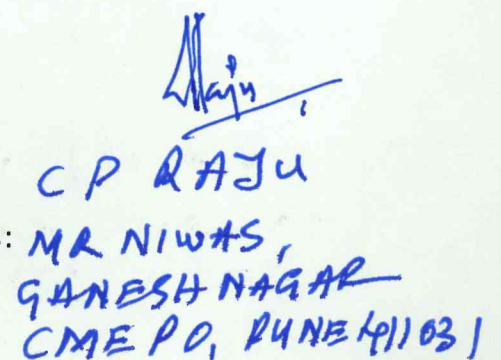 Raju
CP RAJU
: MR NIWAS,
GANESH NAGAR
CME PO, PUNE 411031